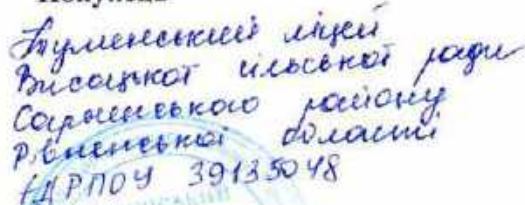 Туменський ліцей
Висоцької сільської ради
Сарненського району
Рівненської області
ЄДРПОУ 39135048